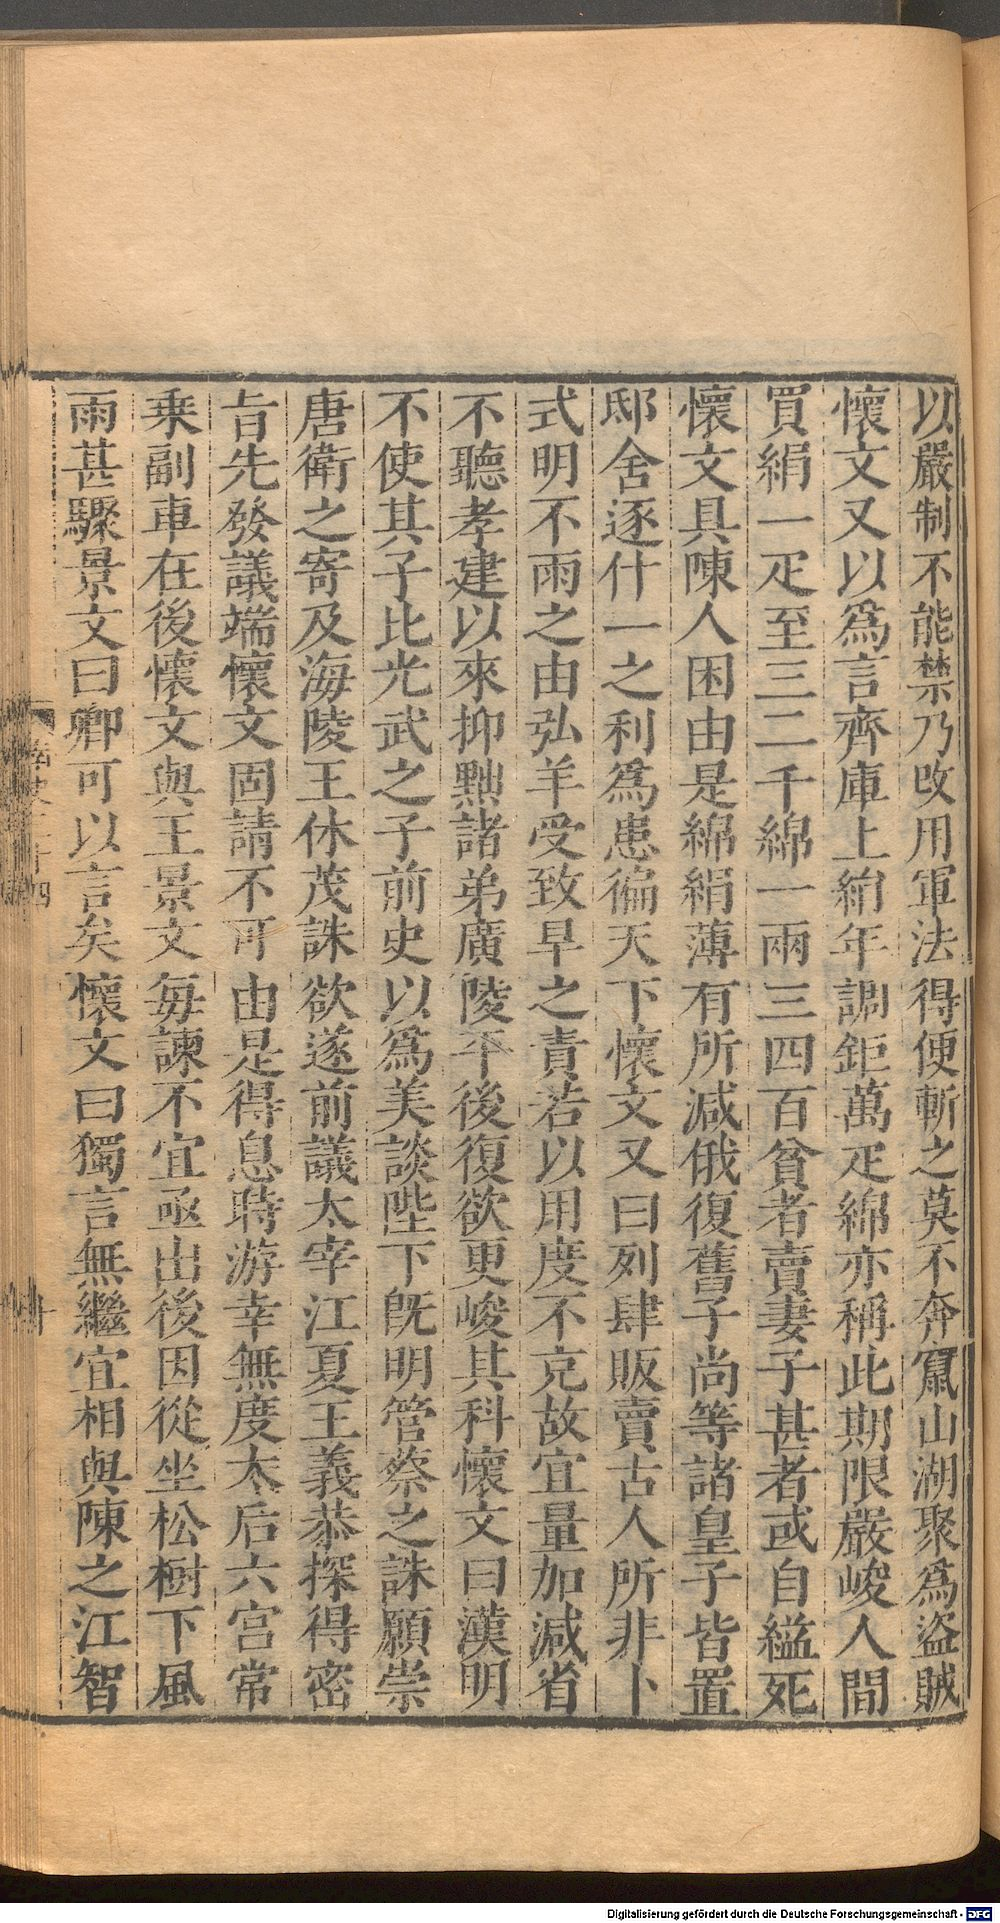 以嚴制不能禁乃改用軍法得便斬之莫不奔竄山湖聚爲盜賊
懷文又以爲言齊庫上絹年調鉅萬疋綿亦稱此期限嚴峻人間
買絹一疋至三二千綿一兩三四百貧者賣妻子甚者或自縊死
懷文具陳人困由是綿絹薄有所減俄復舊子尚等諸皇子皆置
邸舍逐什一之利爲患徧天下懷文又曰列肆販賣古人所非卜
式明不雨之由弘羊受致旱之責若以用度不克故宜量加減省
不聽孝建以來抑黜諸弟廣陵平後復欲更峻其科懷文曰漢明
不使其子比光武之子前史以爲美談陛下旣明管蔡之誅願崇
唐衛之寄及海陵王休茂誅欲遂前議太宰江夏王義恭探得密
旨先發議端懷文固請不可由是得息時游幸無度太后六宮常
乗副車在後懷文與王景文每諫不宜亟出後因從坐松樹下風
雨甚驟景文曰卿可以言矣懷文曰獨言無繼宜相與陳之江智
Digitalisierung gefördert durch die Deutsche Forschungsgemeinschaft - DFG